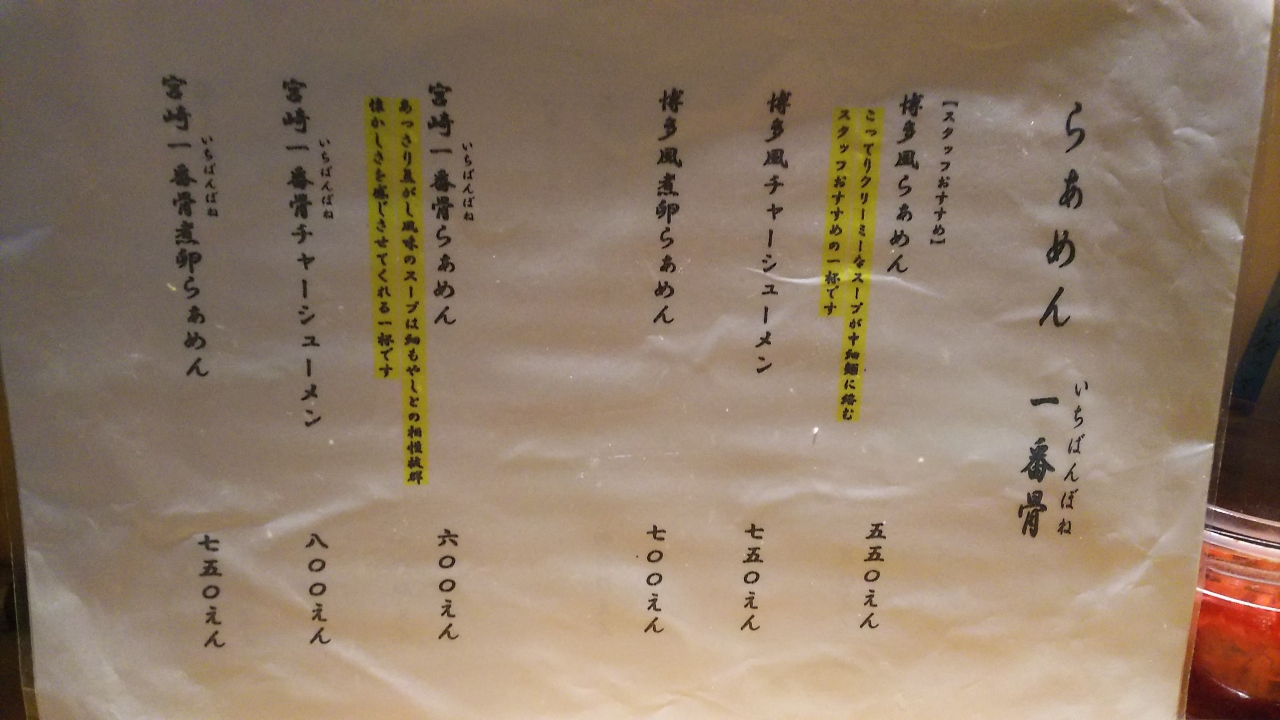 らあめん 一番骨
いちばんぼね
【スタッフおすすめ】
博多風らあめん 五五〇えん
こってりクリーミーなスープが中細麺に絡む
スタッフおすすめの一杯です
博多風チャーシューメン 七五〇えん
博多風煮卵らあめん 七〇〇えん
いちばんぼね
宮崎一番骨らあめん 六〇〇えん
あっさり焦がし風味のスープは細もやしとの相性抜群
懐かしさを感じさせてくれる一杯です
いちばんぼね
宮崎一番骨チャーシューメン 八〇〇えん
いちばんぼね
宮崎一番骨煮卵らあめん 七五〇えん